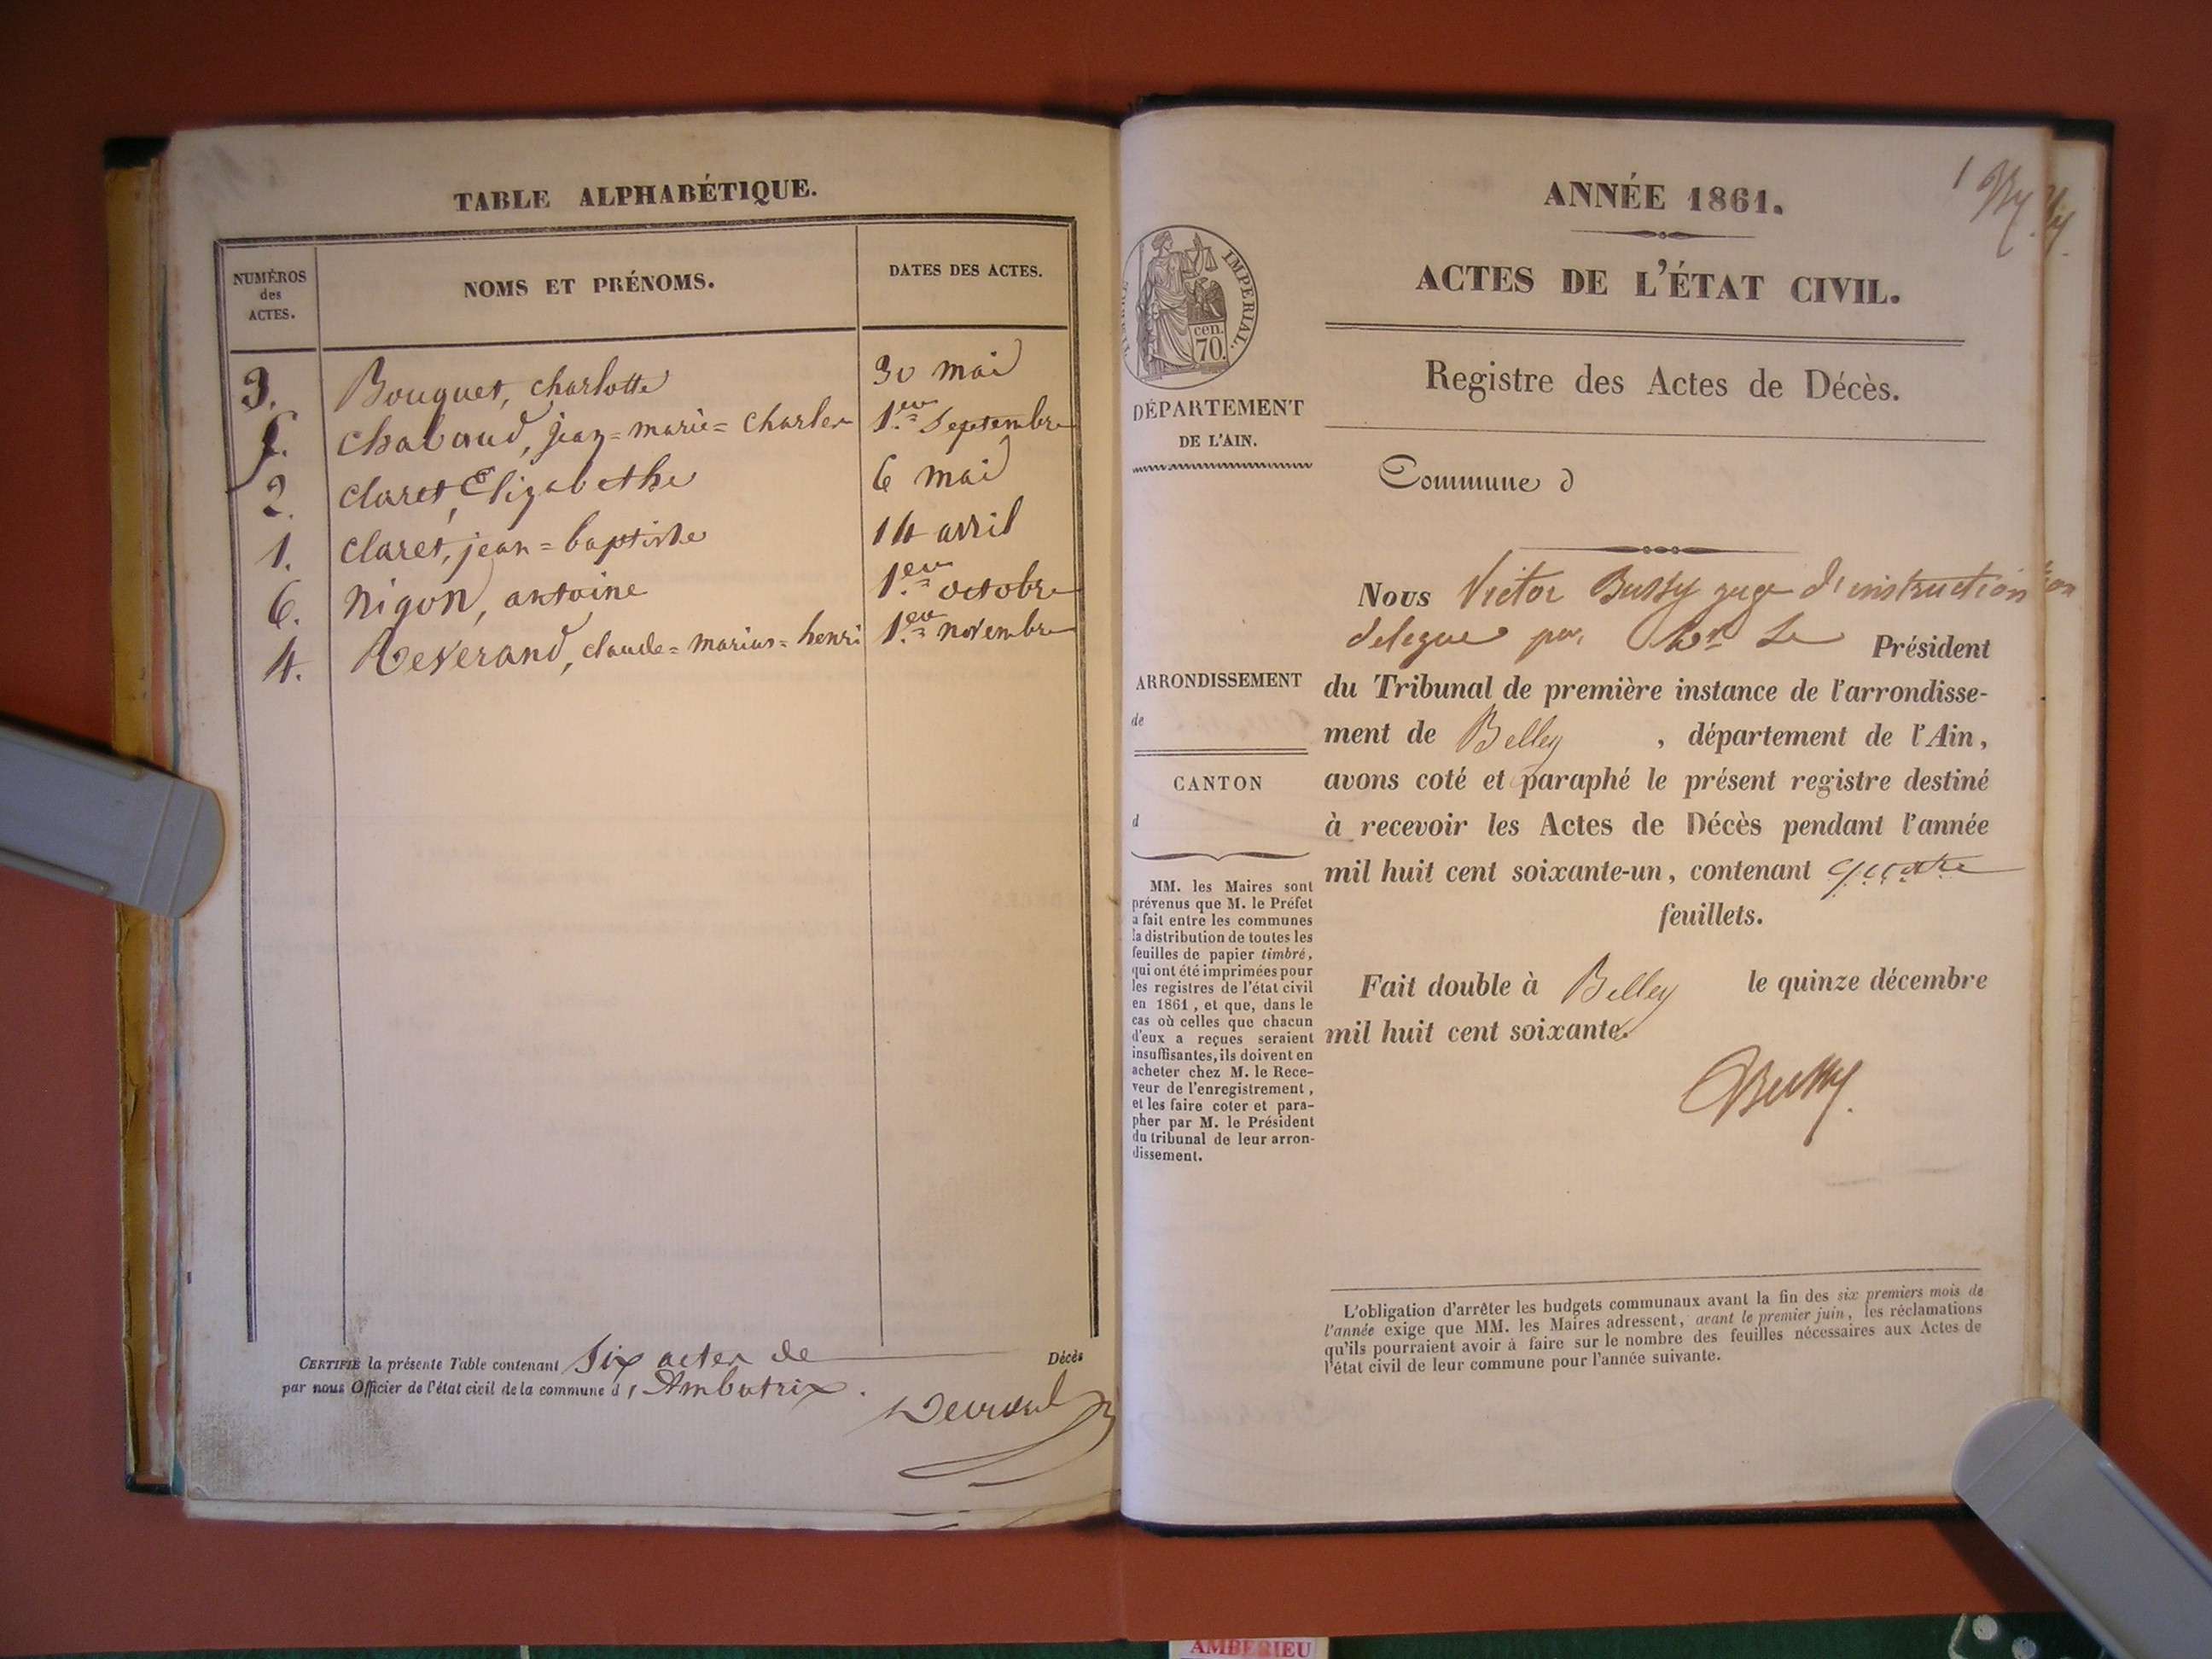 TABLE ALPHABÉTIQUE.
NUMÉROS des ACTES.
NOMS ET PRÉNOMS.
DATES DES ACTES.
3. Bouquet, charlotte 30 mai
5. Chabaud, jean=marie=Charles 1.er Septembre
2. Claret, Elizabethe 6 mai
1. Claret, jean=baptiste 14 avril
6. Nigon, antoine 1.er octobre
4. Reverand, claude=marius=henri 1.er novembre
CERTIFIÉ la présente Table contenant Six actes de Décès
par nous Officier de l'état civil de la commune d'Ambutrix.
1
ANNÉE 1861.
ACTES DE L'ÉTAT CIVIL.
TIMBRE IMPERIAL.
cen.
70.
DÉPARTEMENT
DE L'AIN.
Registre des Actes de Décès.
Commune d
Nous Victor Bussy juge d'instruction
délégué par Mr Le Président
du Tribunal de première instance de l'arrondisse-
ment de Belley, département de l'Ain,
avons coté et paraphé le présent registre destiné
à recevoir les Actes de Décès pendant l'année
mil huit cent soixante-un, contenant quatre
feuillets.
Fait double à Belley le quinze décembre
mil huit cent soixante.
Bussy
ARRONDISSEMENT
de
CANTON
d
MM. les Maires sont
prévenus que M. le Préfet
a fait entre les communes
la distribution de toutes les
feuilles de papier timbré,
qui ont été imprimées pour
les registres de l'état civil
en 1861, et que, dans le
cas où celles que chacun
d'eux a reçues seraient
insuffisantes, ils doivent en
acheter chez M. le Rece-
veur de l'enregistrement,
et les faire coter et para-
pher par M. le Président
du tribunal de leur arron-
dissement.
L'obligation d'arrêter les budgets communaux avant la fin des six premiers mois de
l'année exige que MM. les Maires adressent, avant le premier juin, les réclamations
qu'ils pourraient avoir à faire sur le nombre des feuilles nécessaires aux Actes de
l'état civil de leur commune pour l'année suivante.
AMBERIEU